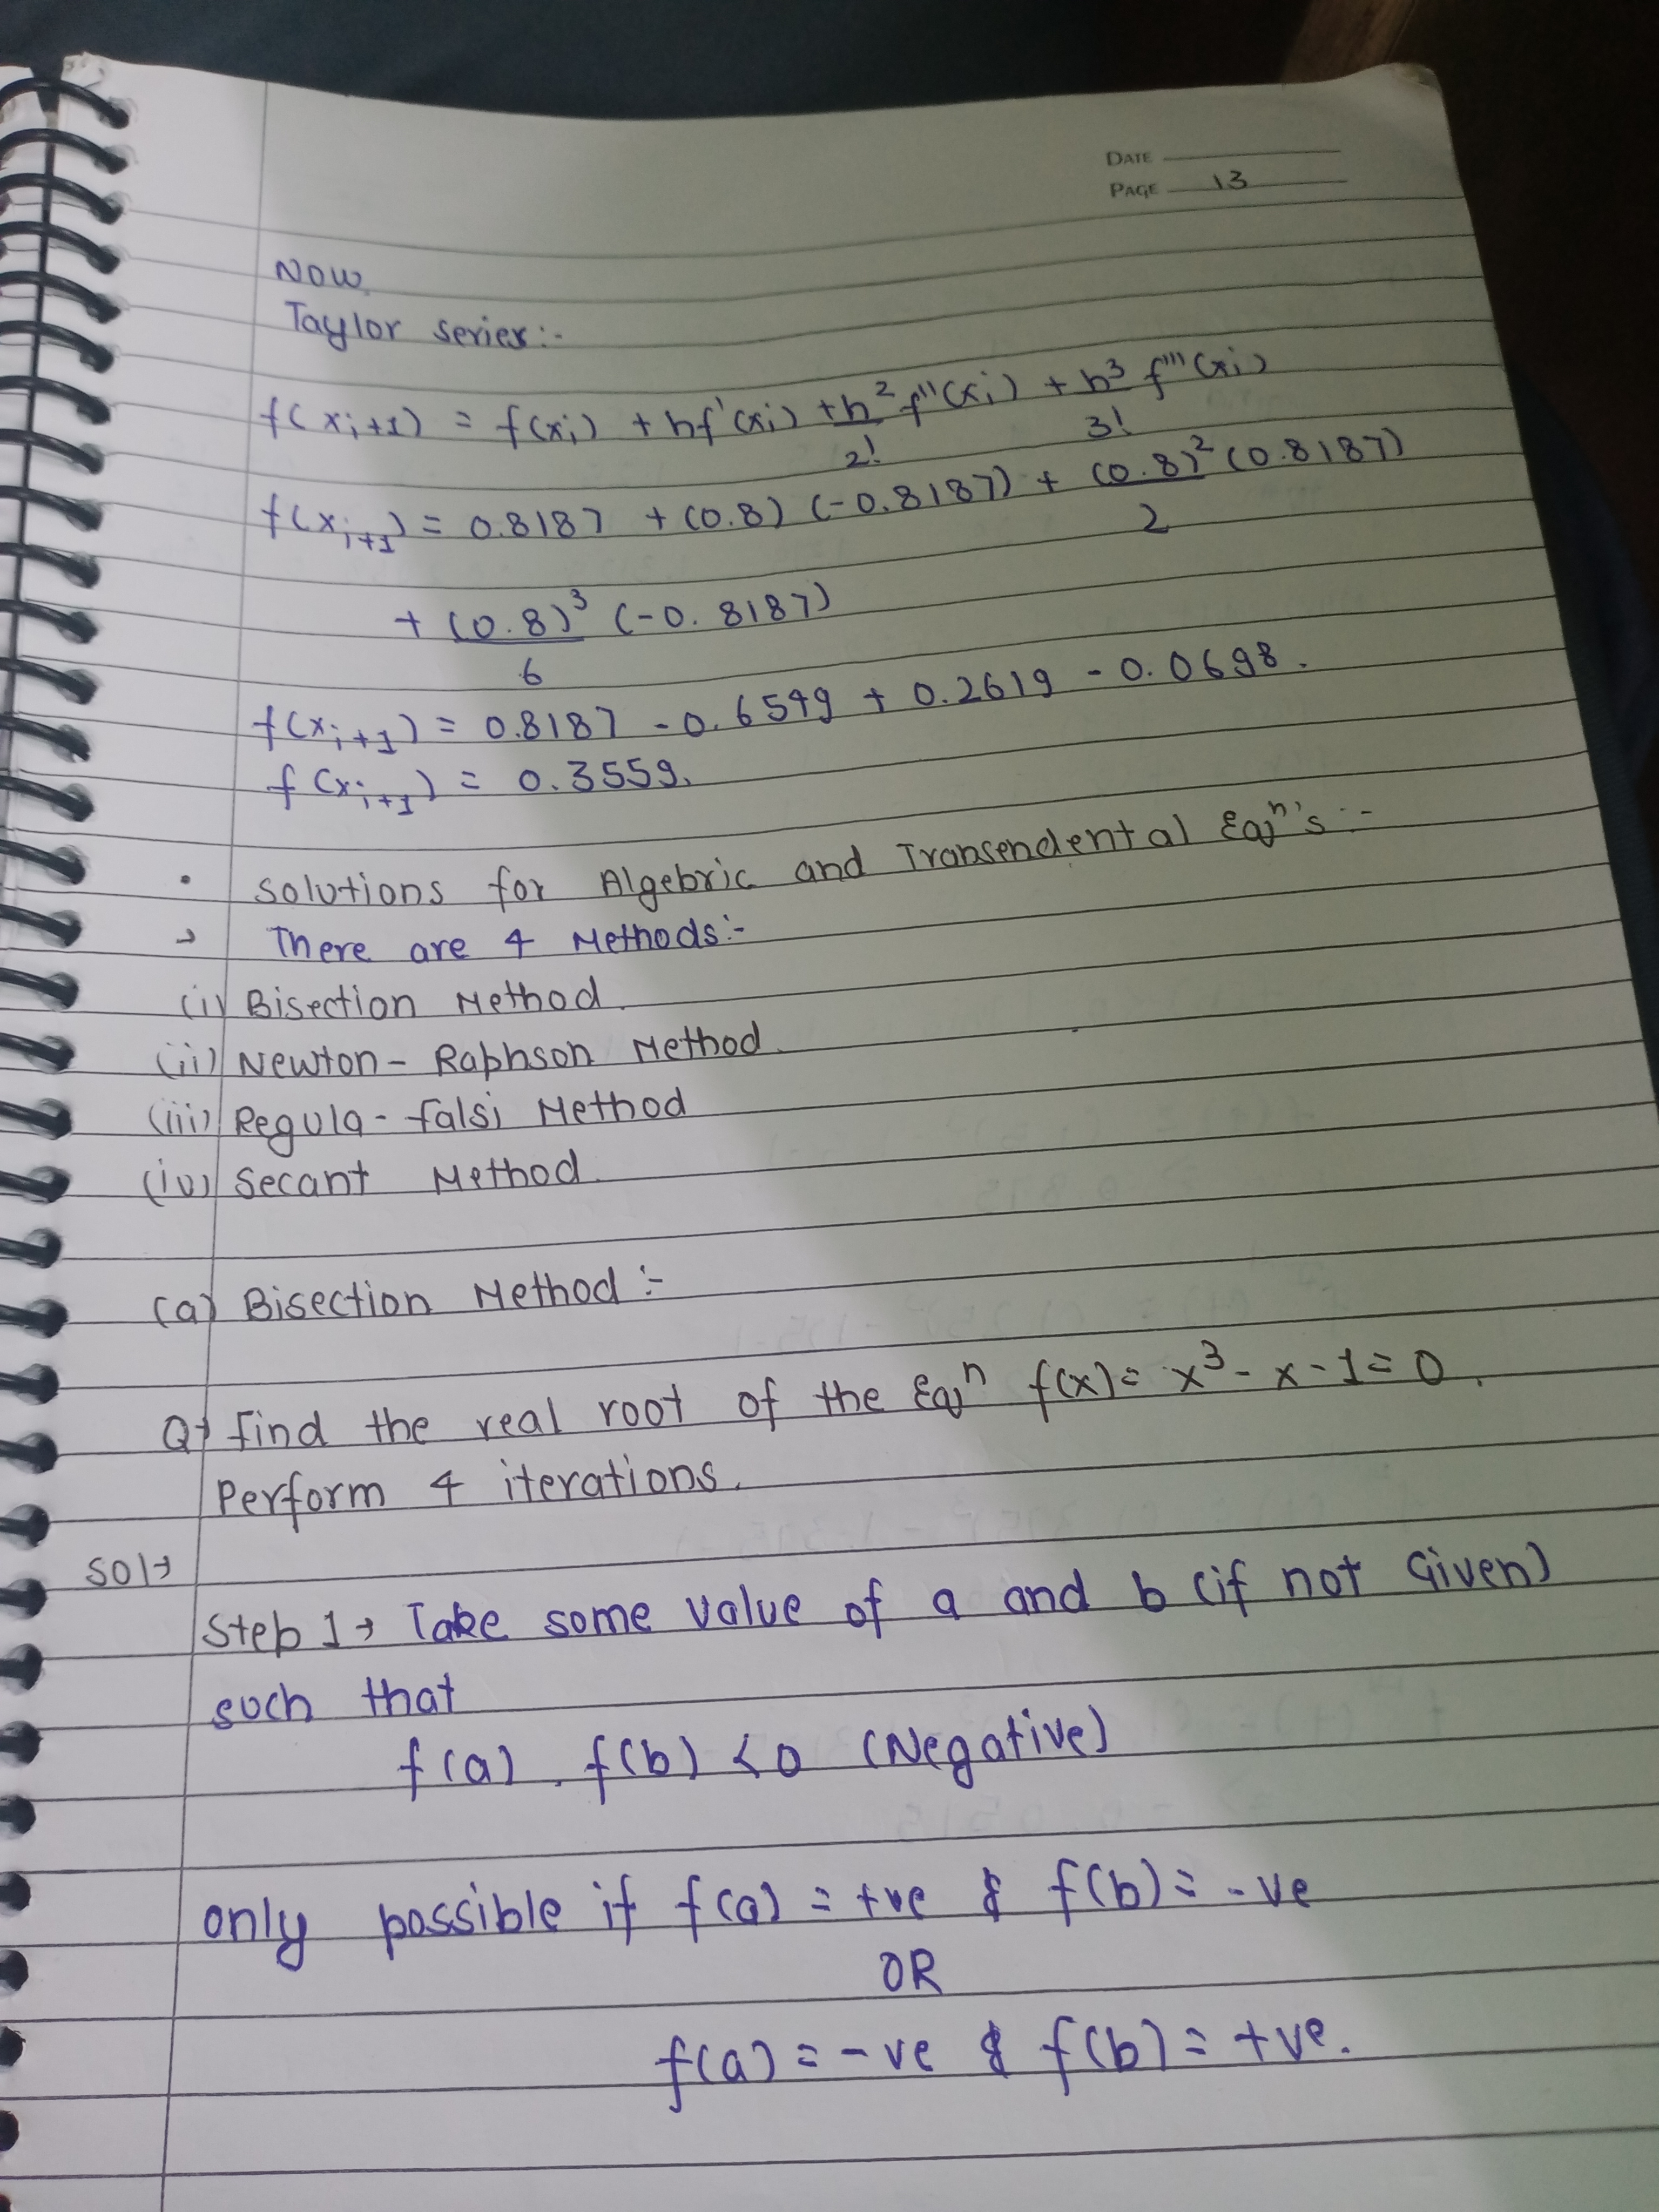 DATE
PAGE 13
NOW,
Taylor series:-
f(xᵢ₊₁) = f(xᵢ) + hf'(xᵢ) + h²/2! f''(xᵢ) + h³/3! f'''(xᵢ)
f(xᵢ₊₁) = 0.8187 + (0.8) (-0.8187) + (0.8)²/2 (0.8187)
+ (0.8)³/6 (-0.8187)
f(xᵢ₊₁) = 0.8187 - 0.6549 + 0.2619 - 0.0698.
f(xᵢ₊₁) = 0.3559.
• Solutions for Algebric and Transendental Eqⁿ's :-
→ There are 4 Methods:-
(i) Bisection Method.
(ii) Newton - Raphson Method.
(iii) Regula - falsi Method
(iv) Secant Method.
(a) Bisection Method :-
Q→ Find the real root of the Eqⁿ f(x) = x³ - x - 1 = 0.
Perform 4 iterations.
Sol→
Step 1 → Take some value of a and b (if not Given)
such that
f(a) . f(b) < 0 (Negative)
only possible if f(a) = +ve & f(b) = -ve
OR
f(a) = -ve & f(b) = +ve.